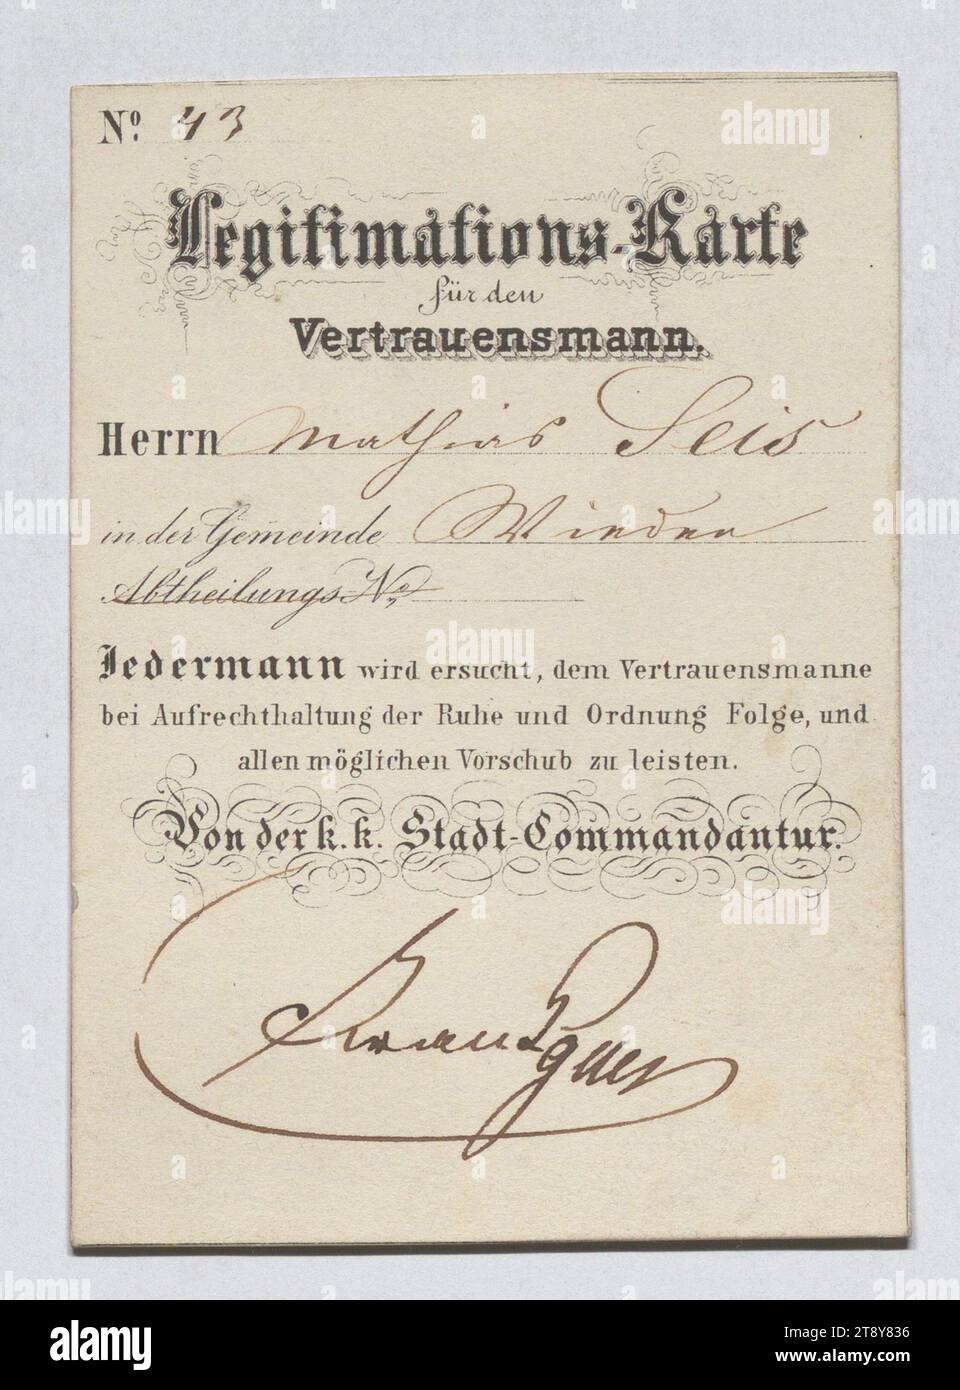 Nº. 43
Legitimations-Karte
für den
Vertrauensmann.
Herrn Mathias Seis
in der Gemeinde Wieden
Abtheilungs-Nº
Jedermann wird ersucht, dem Vertrauensmanne
bei Aufrechthaltung der Ruhe und Ordnung Folge, und
allen möglichen Vorschub zu leisten.
Von der k. k. Stadt-Commandantur.
alamy
Image ID: 2T8Y836
www.alamy.com